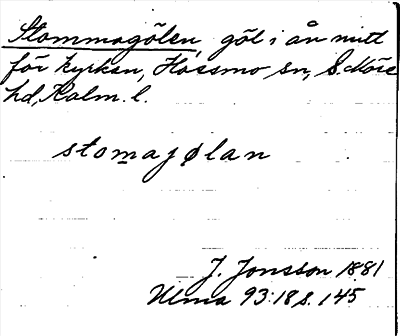 Stommagölen, göl i ån mitt
för kyrkan, Hossmo sn, S. Möre
hd, Kalm. l.
stomajølan
J. Jonsson 1881
Ulma 93:18 s. 145